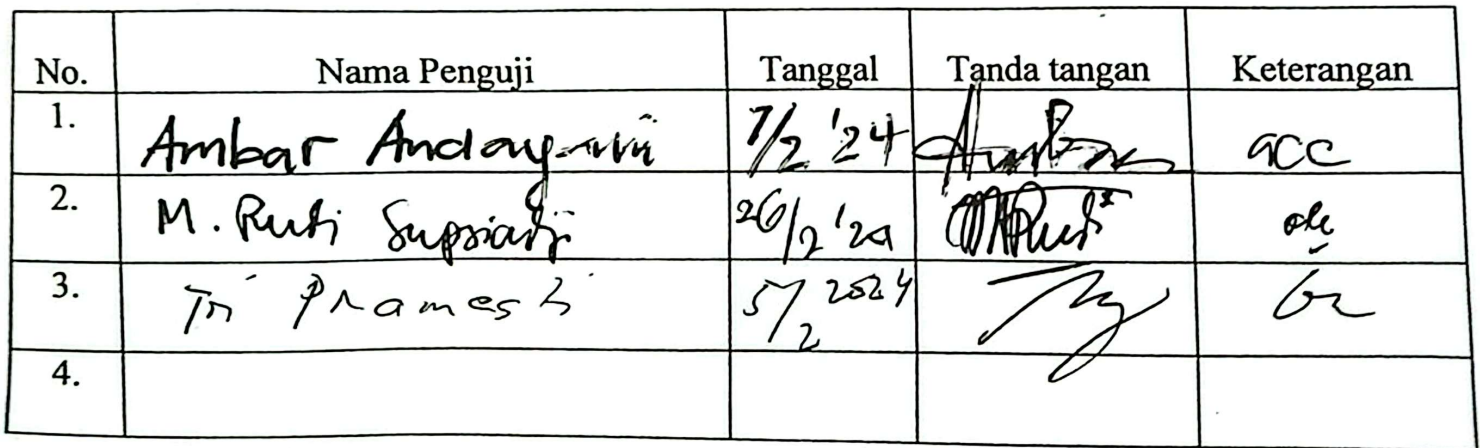 No. Nama Penguji Tanggal Tanda tangan Keterangan
1. Ambar Andayani 7/2 '24 acc
2. M. Rudi Supriadji 26/2 '24
3. Tri Pramesti 5/2 2024
4.